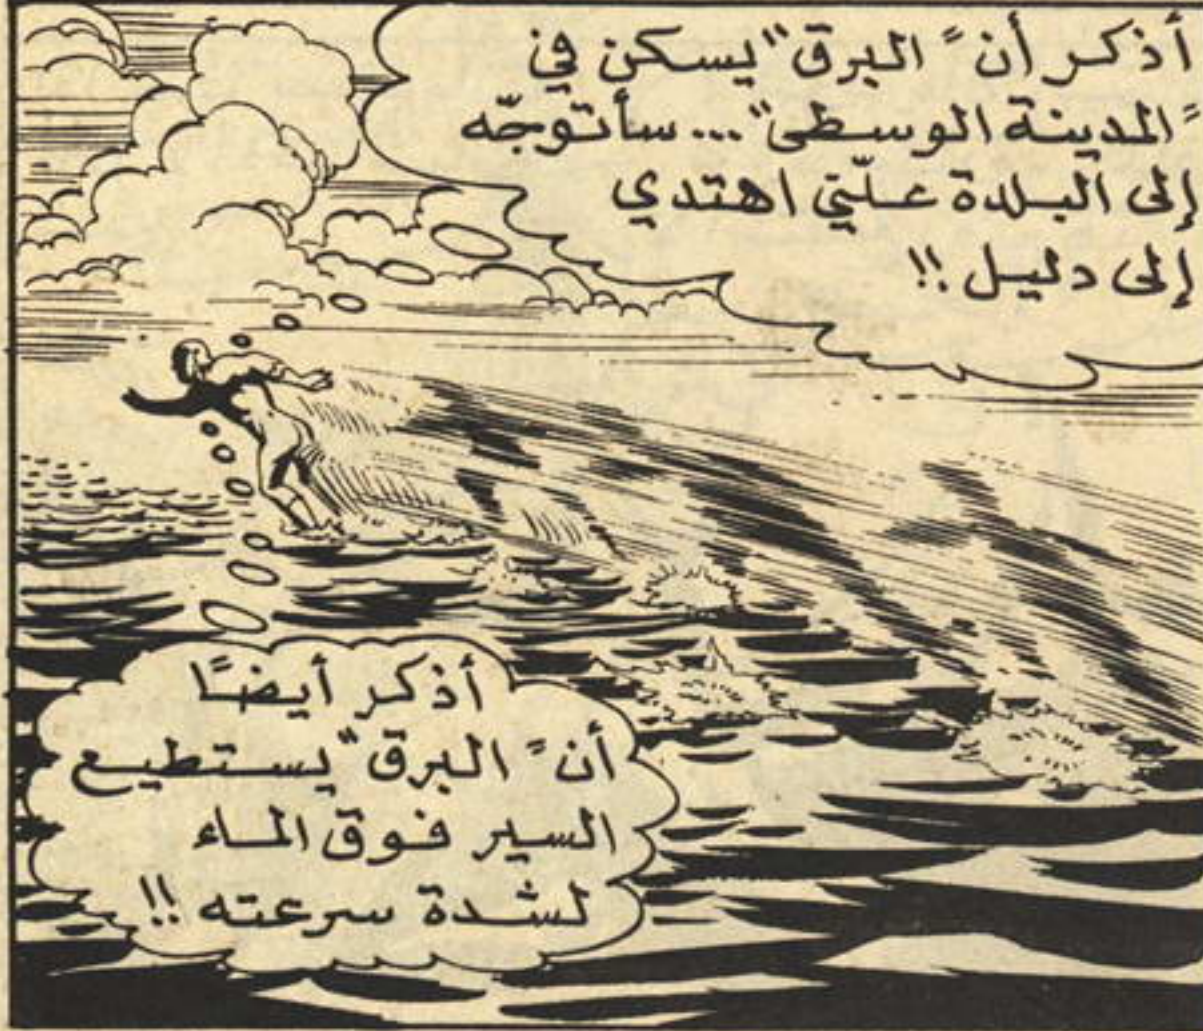 أذكر أن "البرق" يسكن في
"المدينة الوسطى"... سأتوجّه
إلى البلدة علّني اهتدي
إلى دليل!!
أذكر أيضًا
أن "البرق" يستطيع
السير فوق الماء
لشدة سرعته!!